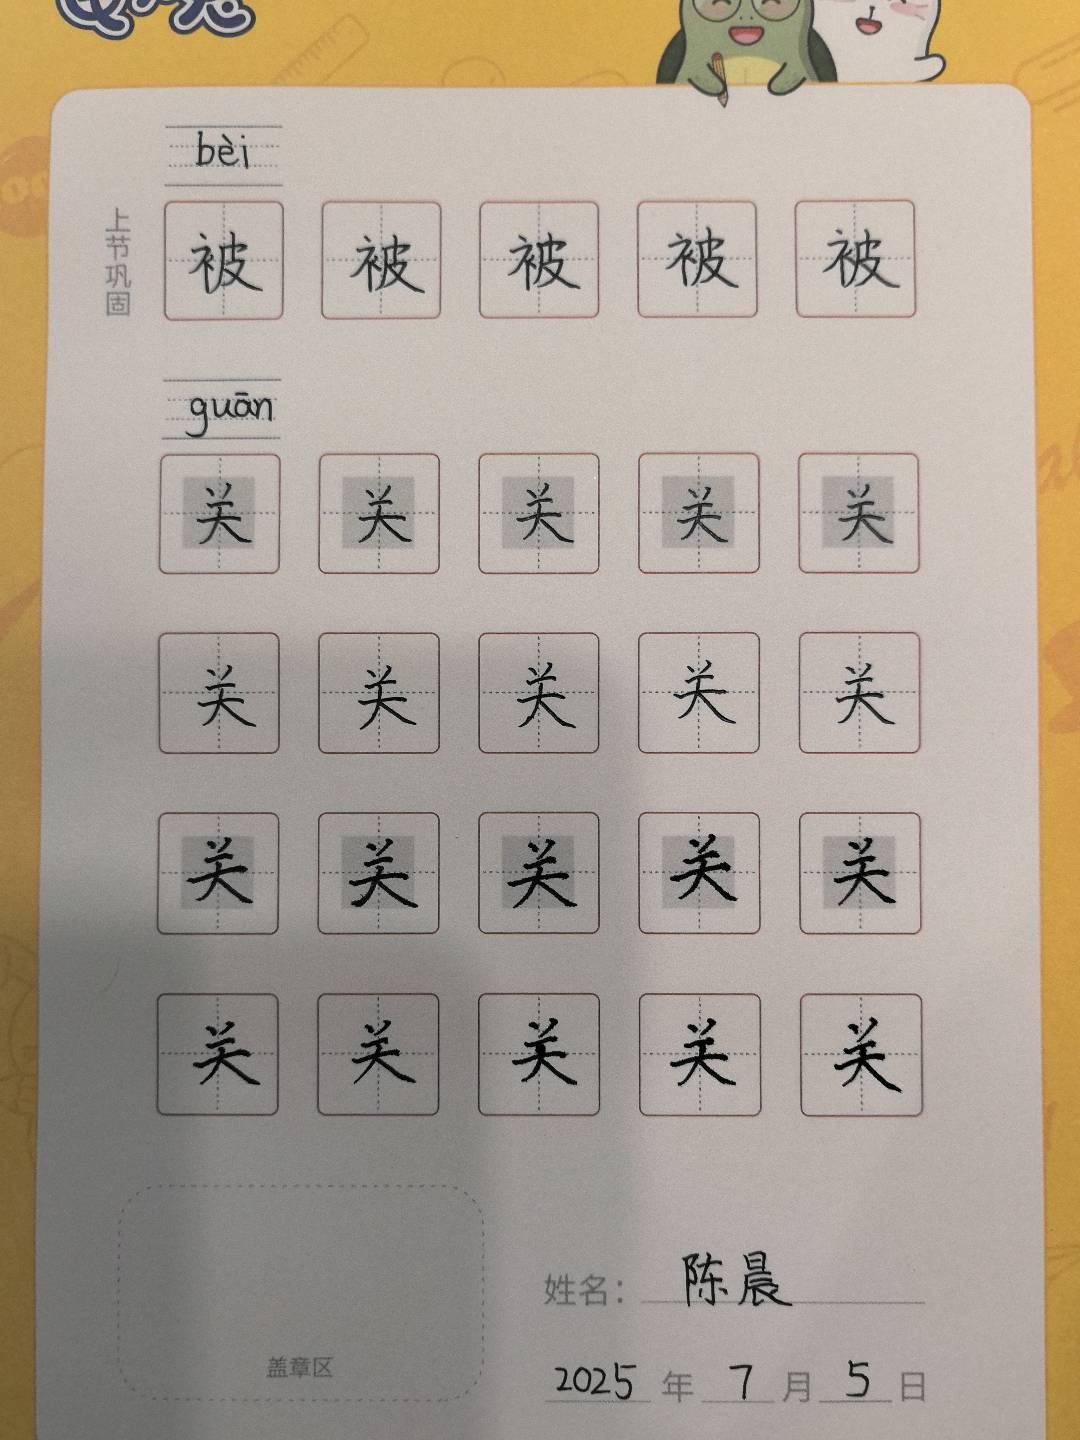 bèi
上节巩固
被 被 被 被 被
guān
关 关 关 关 关
关 关 关 关 关
关 关 关 关 关
关 关 关 关 关
姓名： 陈晨
盖章区
2025 年 7 月 5 日